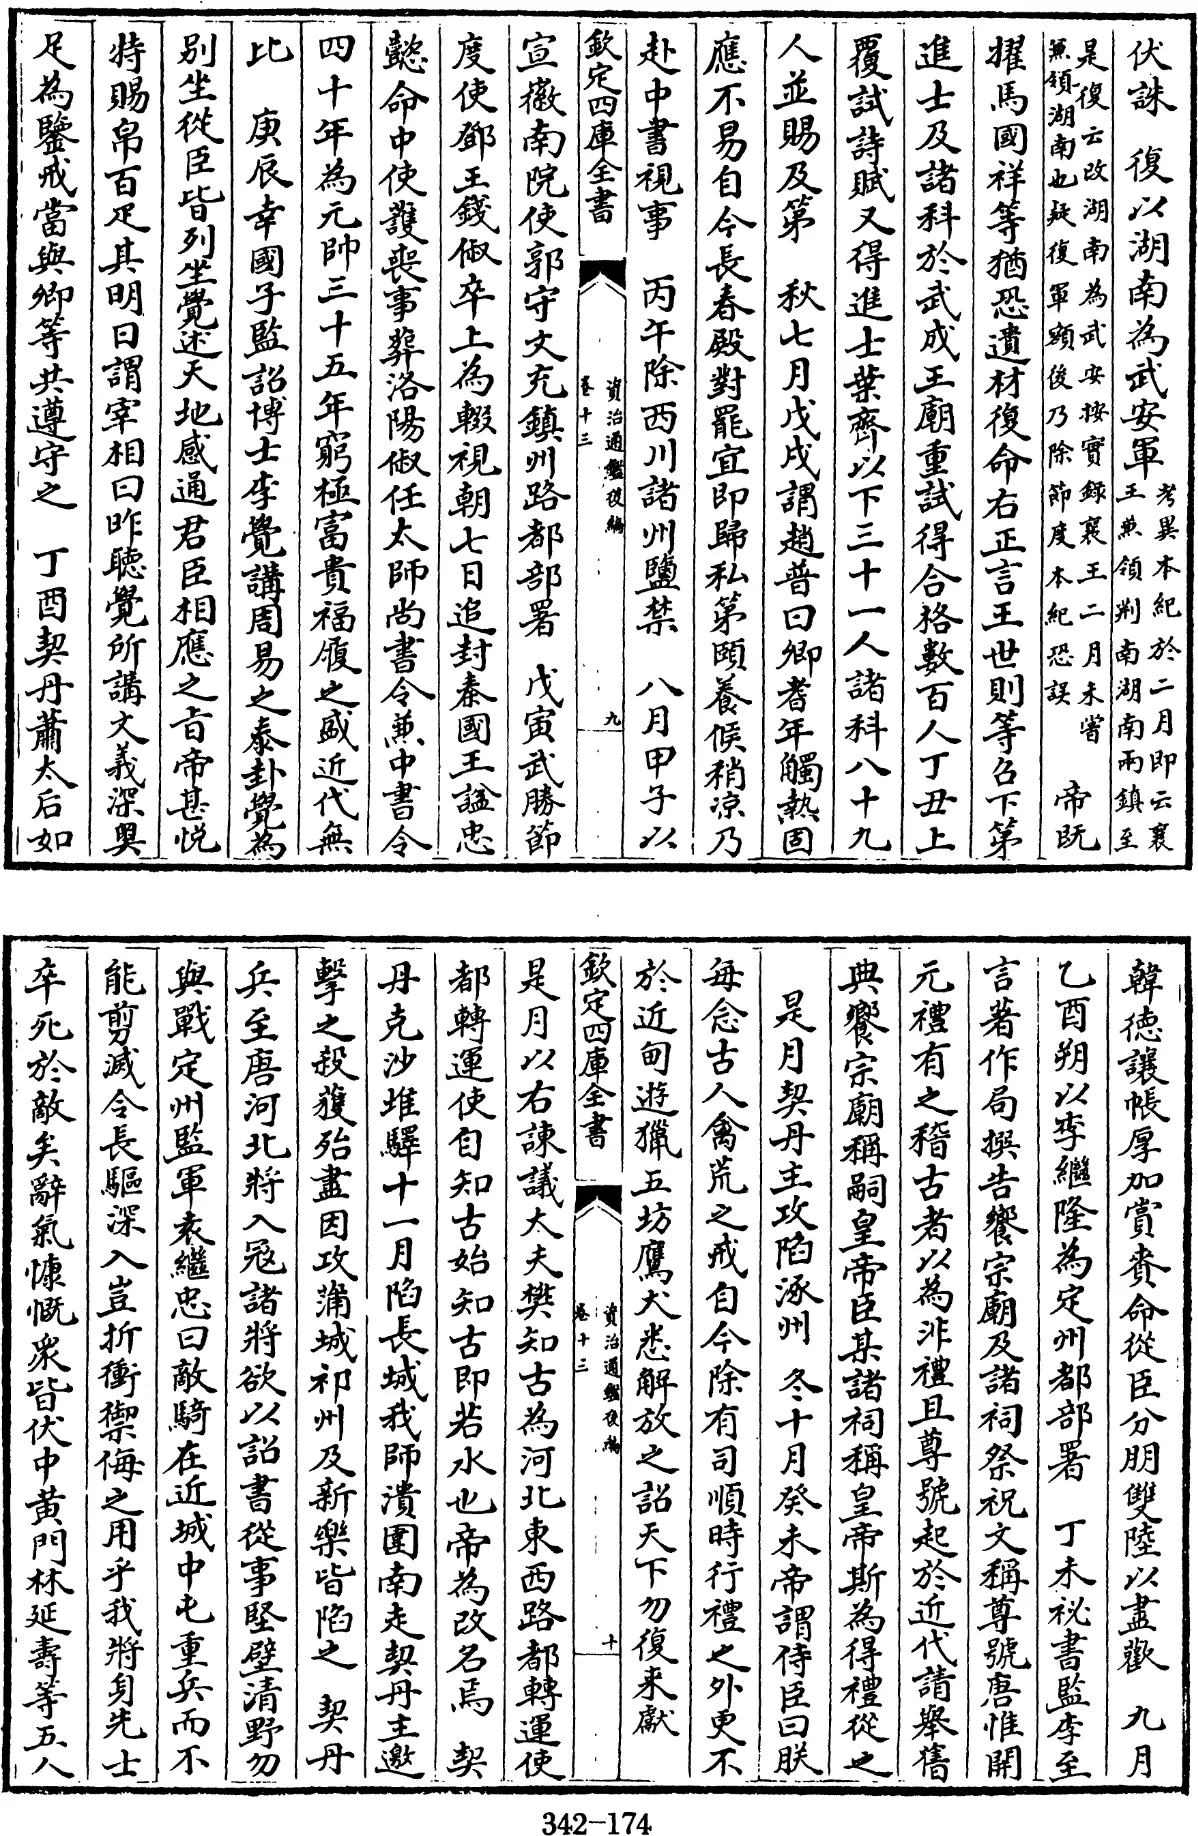 伏誅　復以湖南為武安軍考異本紀於二月即云襄
王兼領荆南湖南兩鎮至
是復云改湖南為武安按實録襄王二月未嘗
兼領湖南也疑復軍額後乃除節度本紀恐誤　帝既
擢馬國祥等猶恐遺材復命右正言王世則等召下第
進士及諸科於武成王廟重試得合格數百人丁丑上
覆試詩賦又得進士葉齊以下三十一人諸科八十九
人並賜及第　秋七月戊戌謂趙普曰卿耆年觸熱固
應不易自今長春殿對罷宜即歸私第頤養候稍凉乃
赴中書視事　丙午除西川諸州鹽禁　八月甲子以
欽定四庫全書
資治通鑑後編
卷十三
九
宣徽南院使郭守文充鎮州路都部署　戊寅武勝節
度使鄧王錢俶卒上為輟視朝七日追封秦國王諡忠
懿命中使護喪事葬洛陽俶任太師尚書令兼中書令
四十年為元帥三十五年窮極富貴福履之盛近代無
比　庚辰幸國子監詔博士李覺講周易之泰卦覺為
别坐從臣皆列坐覺述天地感通君臣相應之旨帝甚悦
特賜帛百疋其明日謂宰相曰昨聽覺所講文義深奥
足為鑒戒當與卿等共遵守之　丁酉契丹蕭太后如
韓德讓帳厚加賞賚命從臣分朋雙陸以盡歡　九月
乙酉朔以李繼隆為定州都部署　丁未秘書監李至
言著作局撰告饗宗廟及諸祠祭祝文稱尊號唐惟開
元禮有之稽古者以為非禮且尊號起於近代請舉舊
典饗宗廟稱嗣皇帝臣某諸祠稱皇帝斯為得禮從之
是月契丹主攻陷涿州　冬十月癸未帝謂侍臣曰朕
每念古人禽荒之戒自今除有司順時行禮之外更不
於近甸遊獵五坊鷹犬悉解放之詔天下勿復来獻
欽定四庫全書
資治通鑑後編
卷十三
十
是月以右諫議大夫樊知古為河北東西路都轉運使
都轉運使自知古始知古即若水也帝為改名焉　契
丹克沙堆驛十一月陷長城我師潰圍南走契丹主邀
擊之殺獲殆盡因攻蒲城祁州及新樂皆陷之　契丹
兵至唐河北將入寇諸將欲以詔書從事堅壁清野勿
與戰定州監軍袁繼忠曰敵騎在近城中屯重兵而不
能剪滅令長驅深入豈折衝禦侮之用乎我將身先士
卒死於敵矣辭氣慷慨衆皆伏中黄門林延壽等五人
342-174